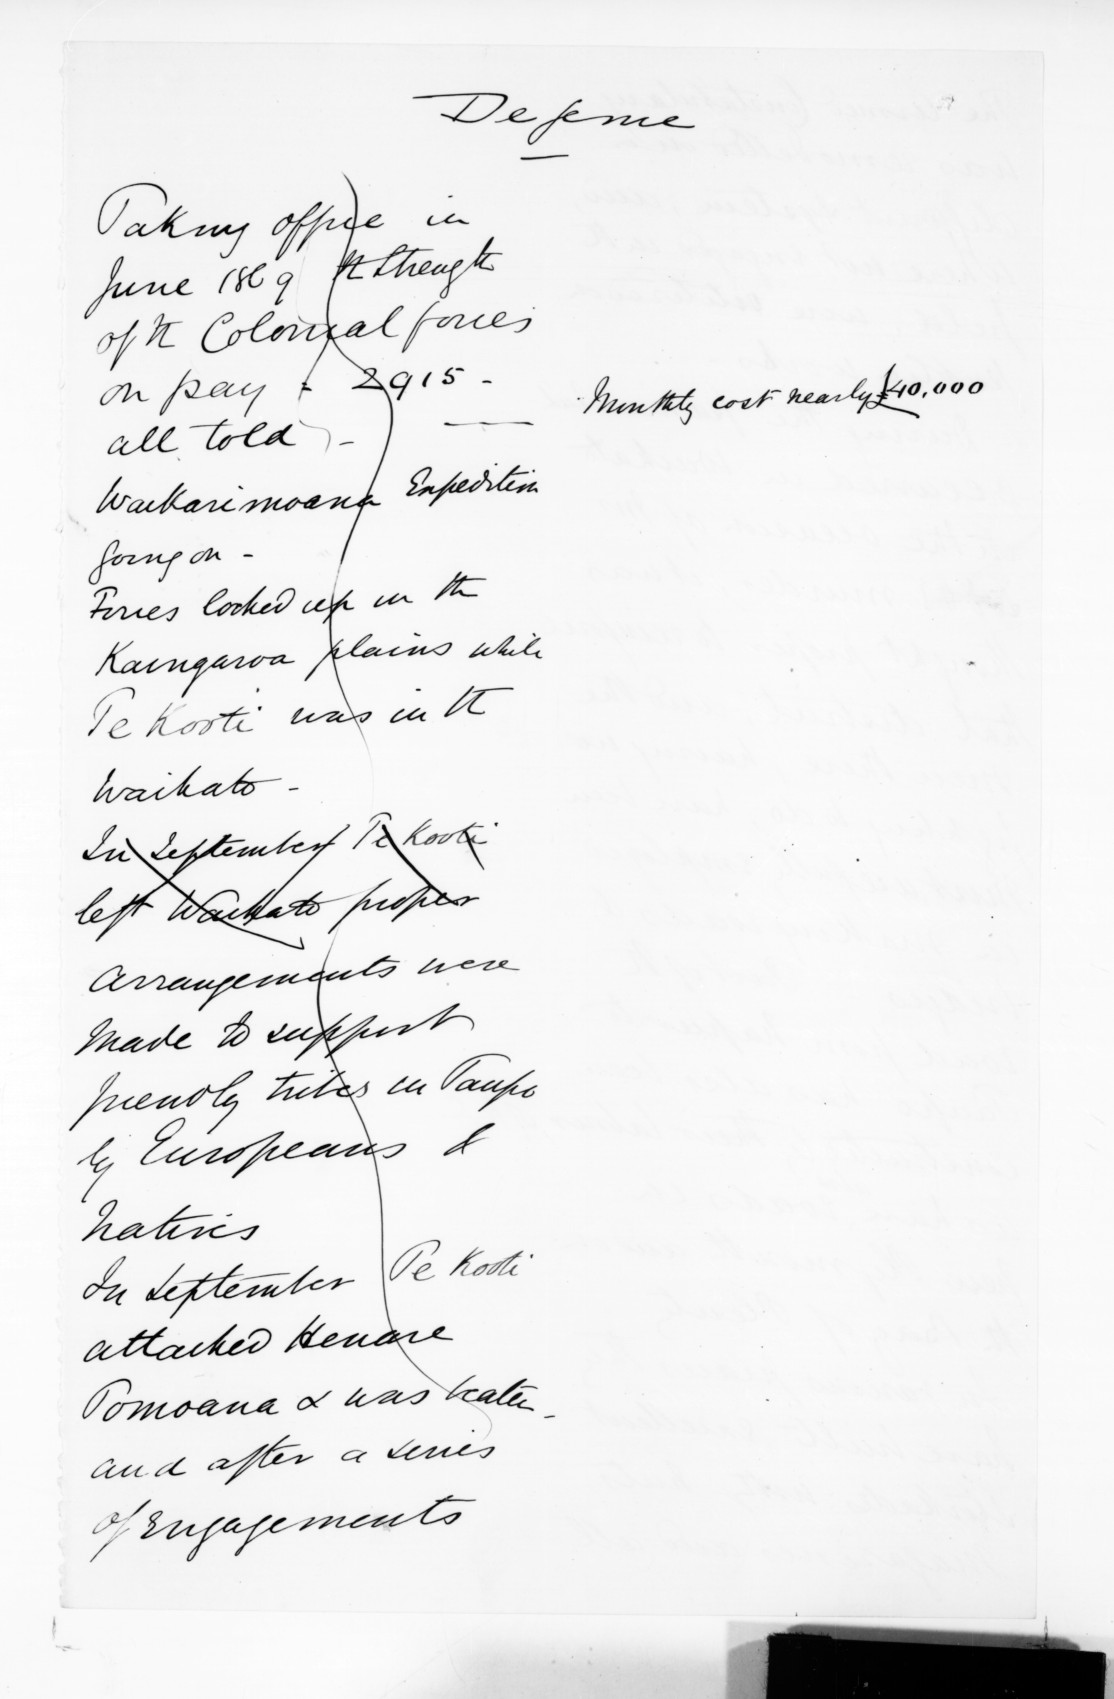 Defence
Taking office in
June 1869 the Strength
of the Colonial forces
on pay - 2915 -
all told -
Monthly cost nearly £40,000
Waikarimoana Expedition
going on -
Forces locked up in the
Kaingaroa plains while
Te Kooti was in the
Waikato -
In September Te Kooti
left Waikato proper
Arrangements were
made to support
friendly tribes in Taupo
by Europeans &
Natives
In September Te Kooti
attacked Henare
Tomoana & was beaten -
and after a series
of Engagements